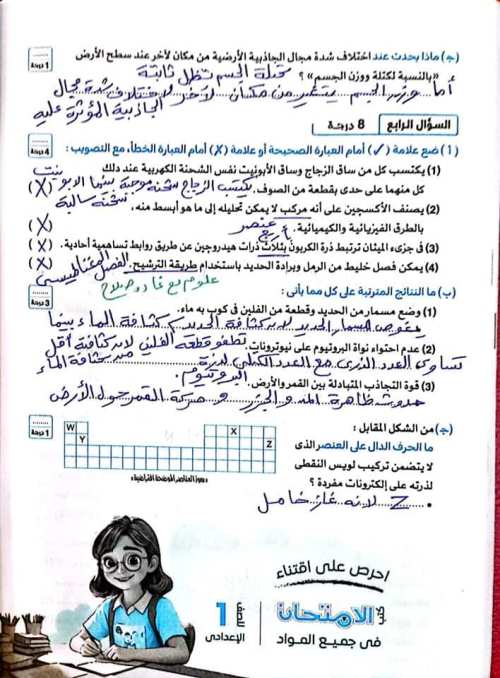 (ج) ماذا يحدث عند اختلاف شدة مجال الجاذبية الأرضية من مكان لآخر عند سطح الأرض
1 درجة
«بالنسبة لكتلة ووزن الجسم» ؟ كتلة الجسم تظل ثابتة
أما وزن الجسم يتغير من مكان لآخر لاختلاف شدة مجال
الجاذبية المؤثرة عليه
السؤال الرابع 8 درجة
(١) ضع علامة (✓) أمام العبارة الصحيحة أو علامة (X) أمام العبارة الخطأ، مع التصويب :
4 درجة
(1) يكتسب كل من ساق الزجاج وساق الأبونيت نفس الشحنة الكهربية عند دلك
كل منهما على حدى بقطعة من الصوف. يكتسب الزجاج شحنة موجبة بينما الابونيت (X)
شحنة سالبة
(2) يصنف الأكسجين على أنه مركب لا يمكن تحليله إلى ما هو أبسط منه.
بالطرق الفيزيائية والكيميائية. عنصر (X)
أربع
(3) فى جزىء الميثان ترتبط ذرة الكربون بثلاث ذرات هيدروجين عن طريق روابط تساهمية أحادية. (X)
(4) يمكن فصل خليط من الرمل وبرادة الحديد باستخدام طريقة الترشيح. الفصل المغناطيسى (X)
(ب) ما النتائج المترتبة على كل مما يأتى :
3 درجة
(1) وضع مسمار من الحديد وقطعة من الفلين فى كوب به ماء.
يغوص مسمار الحديد لان كثافة الحديد > كثافة الماء بينما
(2) عدم احتواء نواة البروتيوم على نيوترونات. تطفو قطعة الفلين لان كثافته أقل
من كثافة الماء
تساوى العدد الذرى مع العدد الكتلى لذرة
البروتيوم
(3) قوة التجاذب المتبادلة بين القمر والأرض.
حدوث ظاهرة المد والجزر وحركة القمر حول الأرض
(ج) من الشكل المقابل :
1 درجة
ما الحرف الدال على العنصر الذى
لا يتضمن تركيب لويس النقطى
لذرته على إلكترونات مفردة ؟
W
X
Y
Z
«رموز العناصر الموضحة افتراضية»
Z لانه غاز خامل
احرص على اقتناء
كتب
الامتحان
فى جميع المواد
الصف
1
الإعدادى